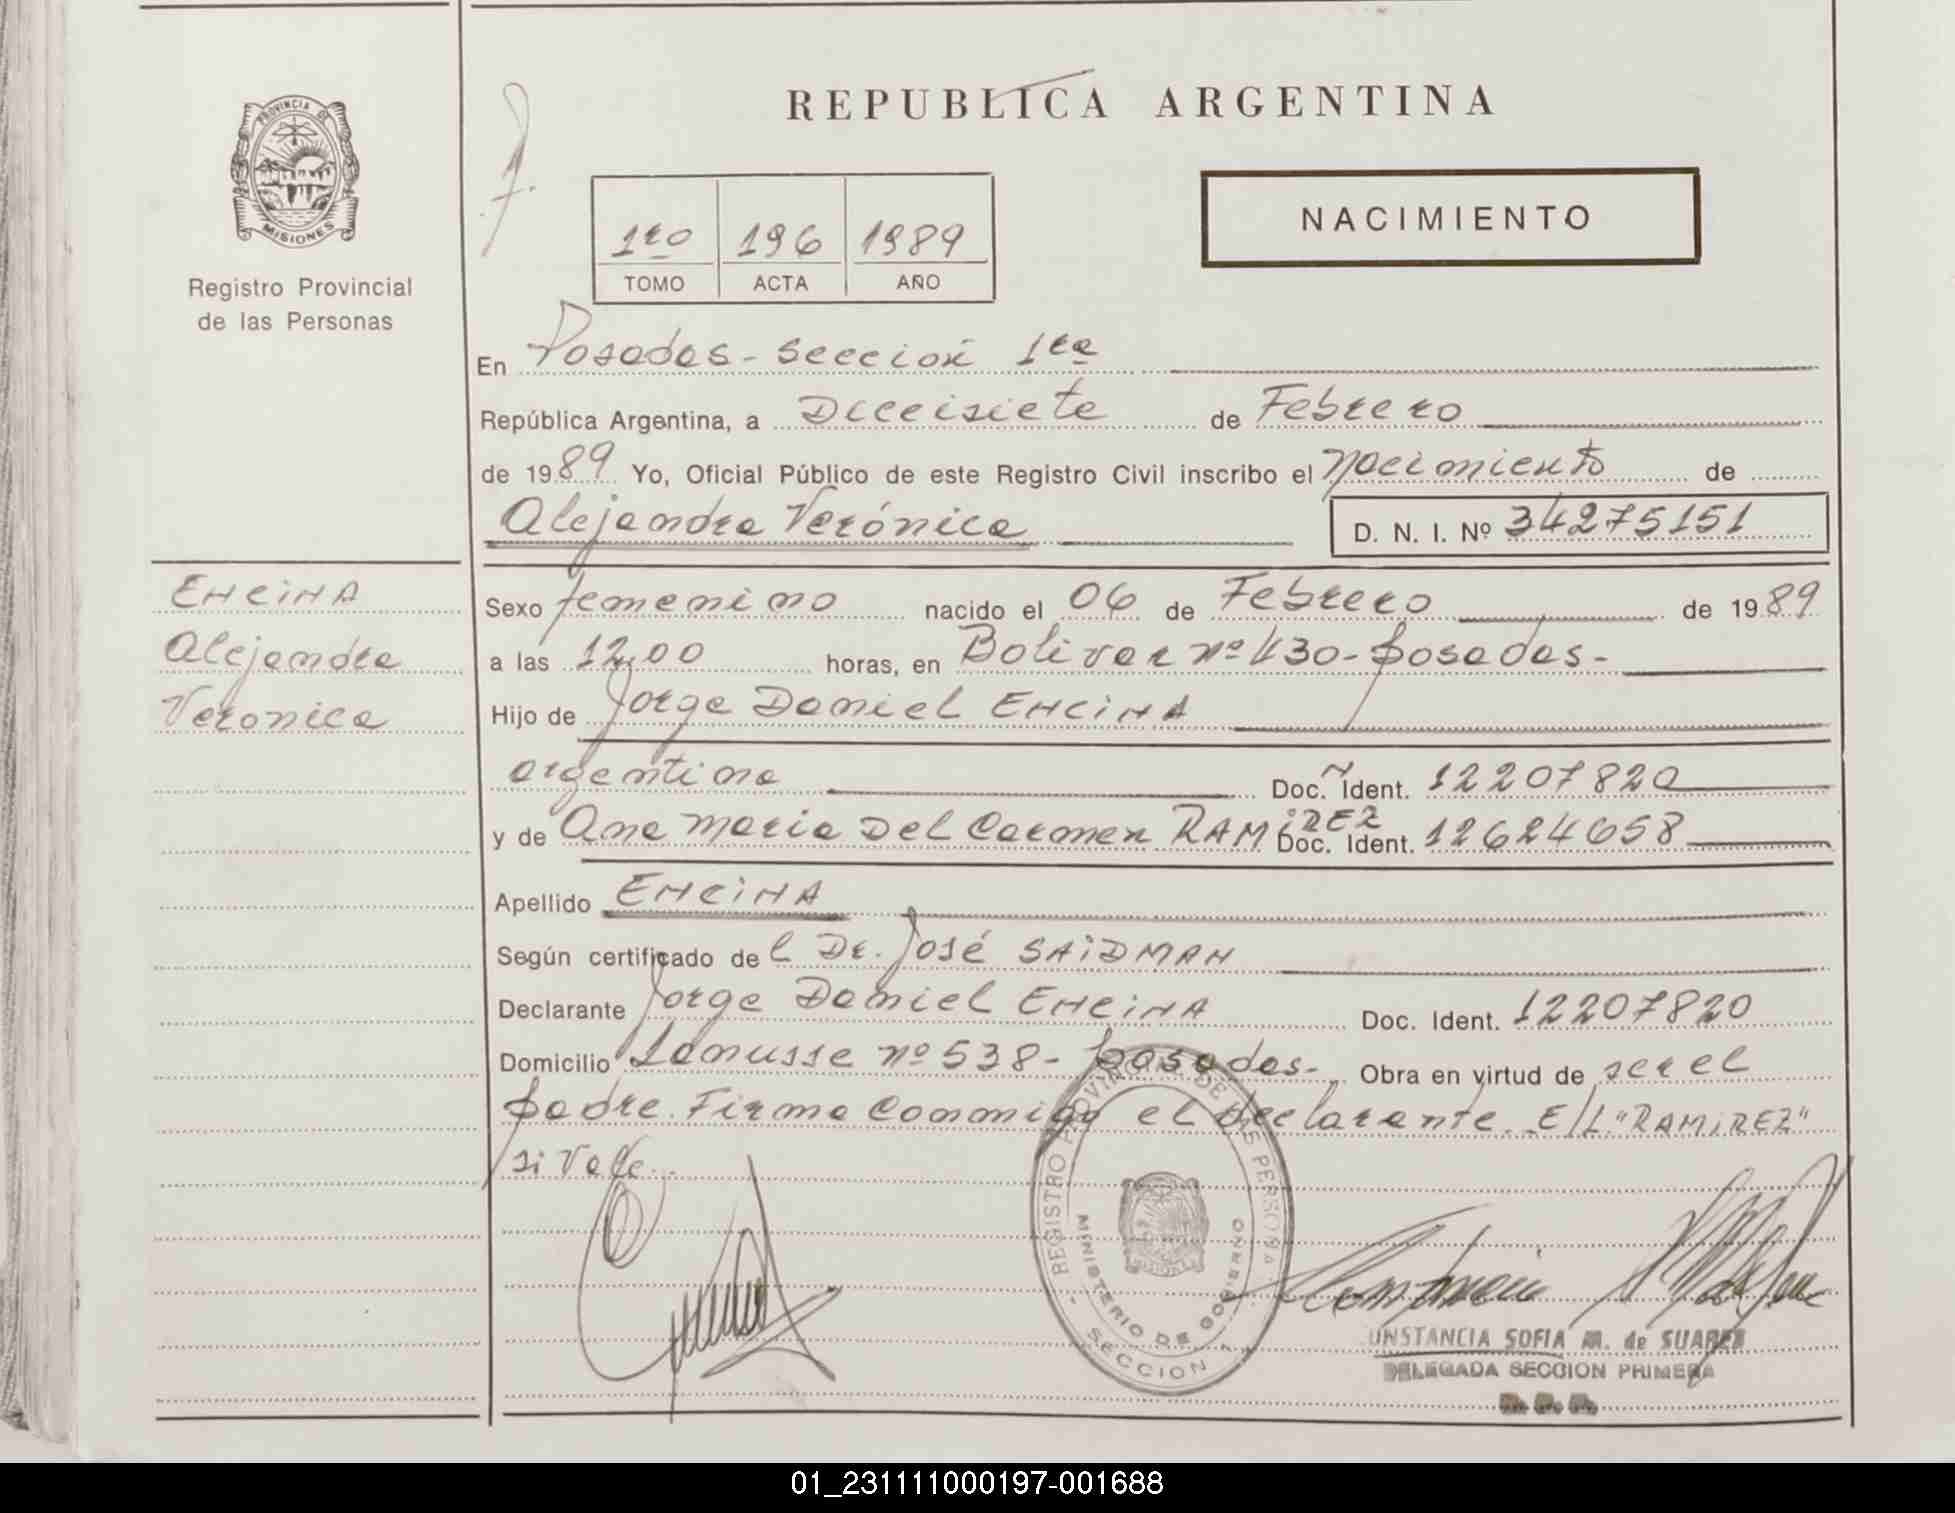 REPUBLICA ARGENTINA
PROVINCIA DE
MISIONES
Registro Provincial
de las Personas
1ro 196 1989
TOMO ACTA AÑO
NACIMIENTO
En Posadas - Sección 1ra
República Argentina, a Diecisiete de Febrero
de 1989 Yo, Oficial Público de este Registro Civil inscribo el nacimiento de
Alejandra Verónica D. N. I. Nº 34275151
ENCINA
Alejandra
Veronica
Sexo femenino nacido el 06 de Febrero de 1989
a las 12,00 horas, en Bolivar nº 430 - posadas -
Hijo de Jorge Daniel ENCINA
argentina Doc. Ident. 12207820
y de Ana Maria Del Carmen RAMIREZ Doc. Ident. 12624658
Apellido ENCINA
Según certificado del Dr. José SAIDMAN
Declarante Jorge Daniel ENCINA Doc. Ident. 12207820
Domicilio Lanusse nº 538 - posadas - Obra en virtud de ser el
padre. Firma conmigo el declarante. E/L "RAMIREZ"
si Vale.
REGISTRO PROVINCIAL DE LAS PERSONAS
MINISTERIO DE GOBIERNO
SECCION 1
UNSTANCIA SOFIA M. de SUAREZ
DELEGADA SECCION PRIMERA
01_231111000197-001688